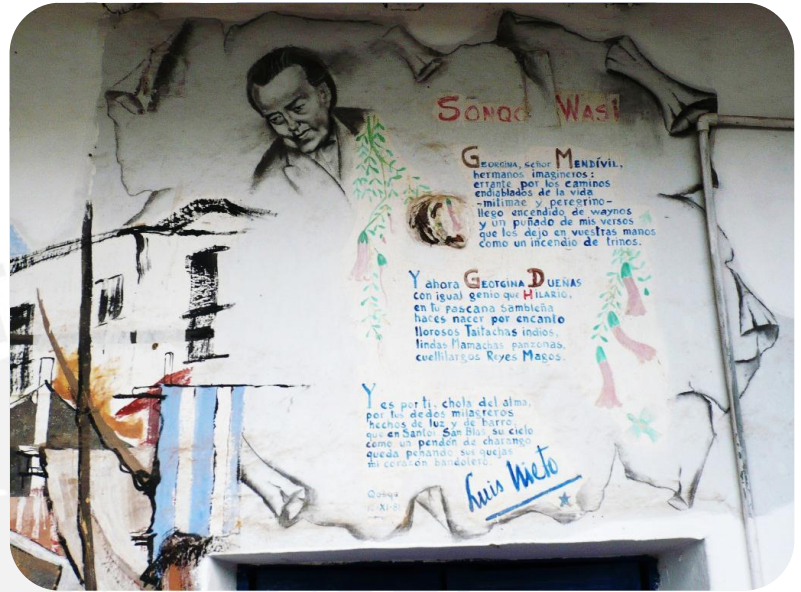 SONQO WASI
GEORGINA, señor MENDÍVIL,
hermanos imagineros:
errante por los caminos
endiablados de la vida
-mitimae y peregrino-
llego encendido de waynos
y un puñado de mis versos
que los dejo en vuestras manos
como un incendio de trinos.
Y ahora GEORGINA DUEÑAS
con igual genio que HILARIO,
en tu pascana sambleña
haces nacer por encanto
llorosos Taitachas indios,
lindas Mamachas panzonas,
cuellilargos Reyes Magos.
Y es por ti, chola del alma,
por tus dedos milagreros
hechos de luz y de barro,
que en Santoi San Blas su cielo
como un pendón de charango
queda penando sus quejas
mi corazón bandolero.
Luis Nieto
Qosqo
XI-8